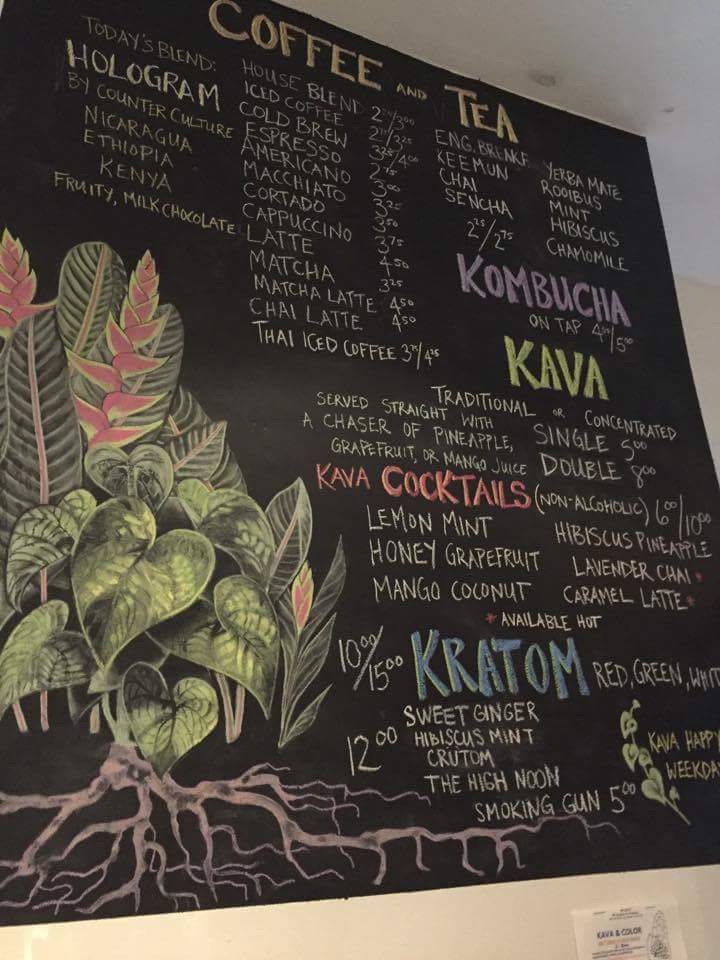 COFFEE AND TEA
TODAY'S BLEND:
HOLOGRAM
BY COUNTER CULTURE
NICARAGUA
ETHIOPIA
KENYA
FRUITY, MILK CHOCOLATE
HOUSE BLEND
ICED COFFEE
COLD BREW
ESPRESSO 2.75
AMERICANO 3.00
MACCHIATO 3.25
CORTADO 3.50
CAPPUCCINO 3.75
LATTE 4.50
MATCHA 3.25
MATCHA LATTE 4.50
CHAI LATTE 4.50
THAI ICED COFFEE
ENG. BREAKF.
KEEMUN
CHAI
SENCHA
2.25/2.75
YERBA MATE
ROOIBUS
MINT
HIBISCUS
CHAMOMILE
KOMBUCHA
ON TAP
KAVA
TRADITIONAL OR CONCENTRATED
SERVED STRAIGHT WITH
A CHASER OF PINEAPPLE,
GRAPEFRUIT, OR MANGO JUICE
SINGLE 5.00
DOUBLE 8.00
KAVA COCKTAILS (NON-ALCOHOLIC) 6.00/10.00
LEMON MINT
HONEY GRAPEFRUIT
MANGO COCONUT
HIBISCUS PINEAPPLE
LAVENDER CHAI *
CARAMEL LATTE *
* AVAILABLE HOT
10.00/15.00 KRATOM RED, GREEN, WHIT
12.00
SWEET GINGER
HIBISCUS MINT
CRUTOM
THE HIGH NOON
SMOKING GUN 5.00
KAVA HAPPY
WEEKDA
KAVA & COLOR